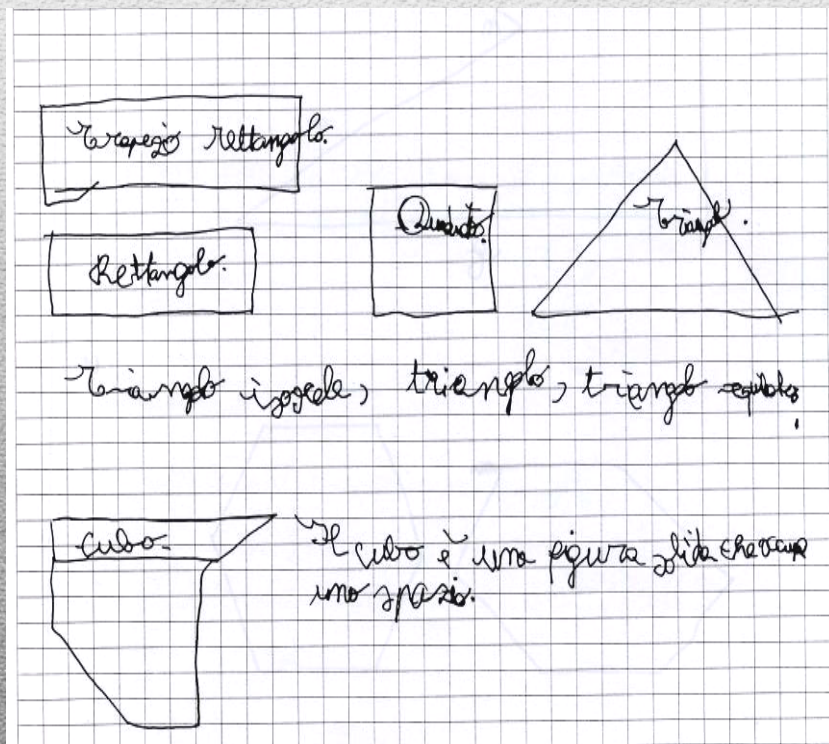 Trapezio rettangolo.
Rettangolo.
Quadrato.
Triangolo.
Triangolo isoscele, triangolo, triangolo
cubo.
Il cubo è una figura solida che occupa
uno spazio.